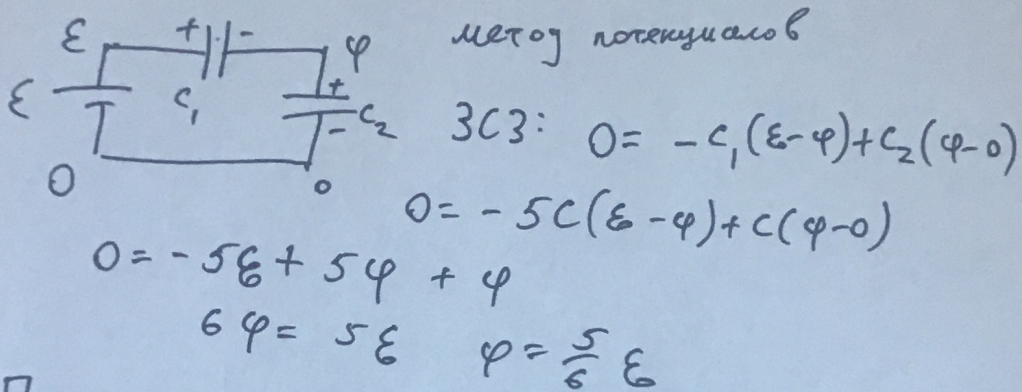 ε + - φ метод потенциалов
ε C₁ + C₂
- ЗСЗ: 0 = - C₁(ε-φ) + C₂(φ-0)
0 0
0 = - 5C(ε - φ) + C(φ-0)
0 = - 5ε + 5φ + φ
6φ = 5ε φ = 5/6 ε